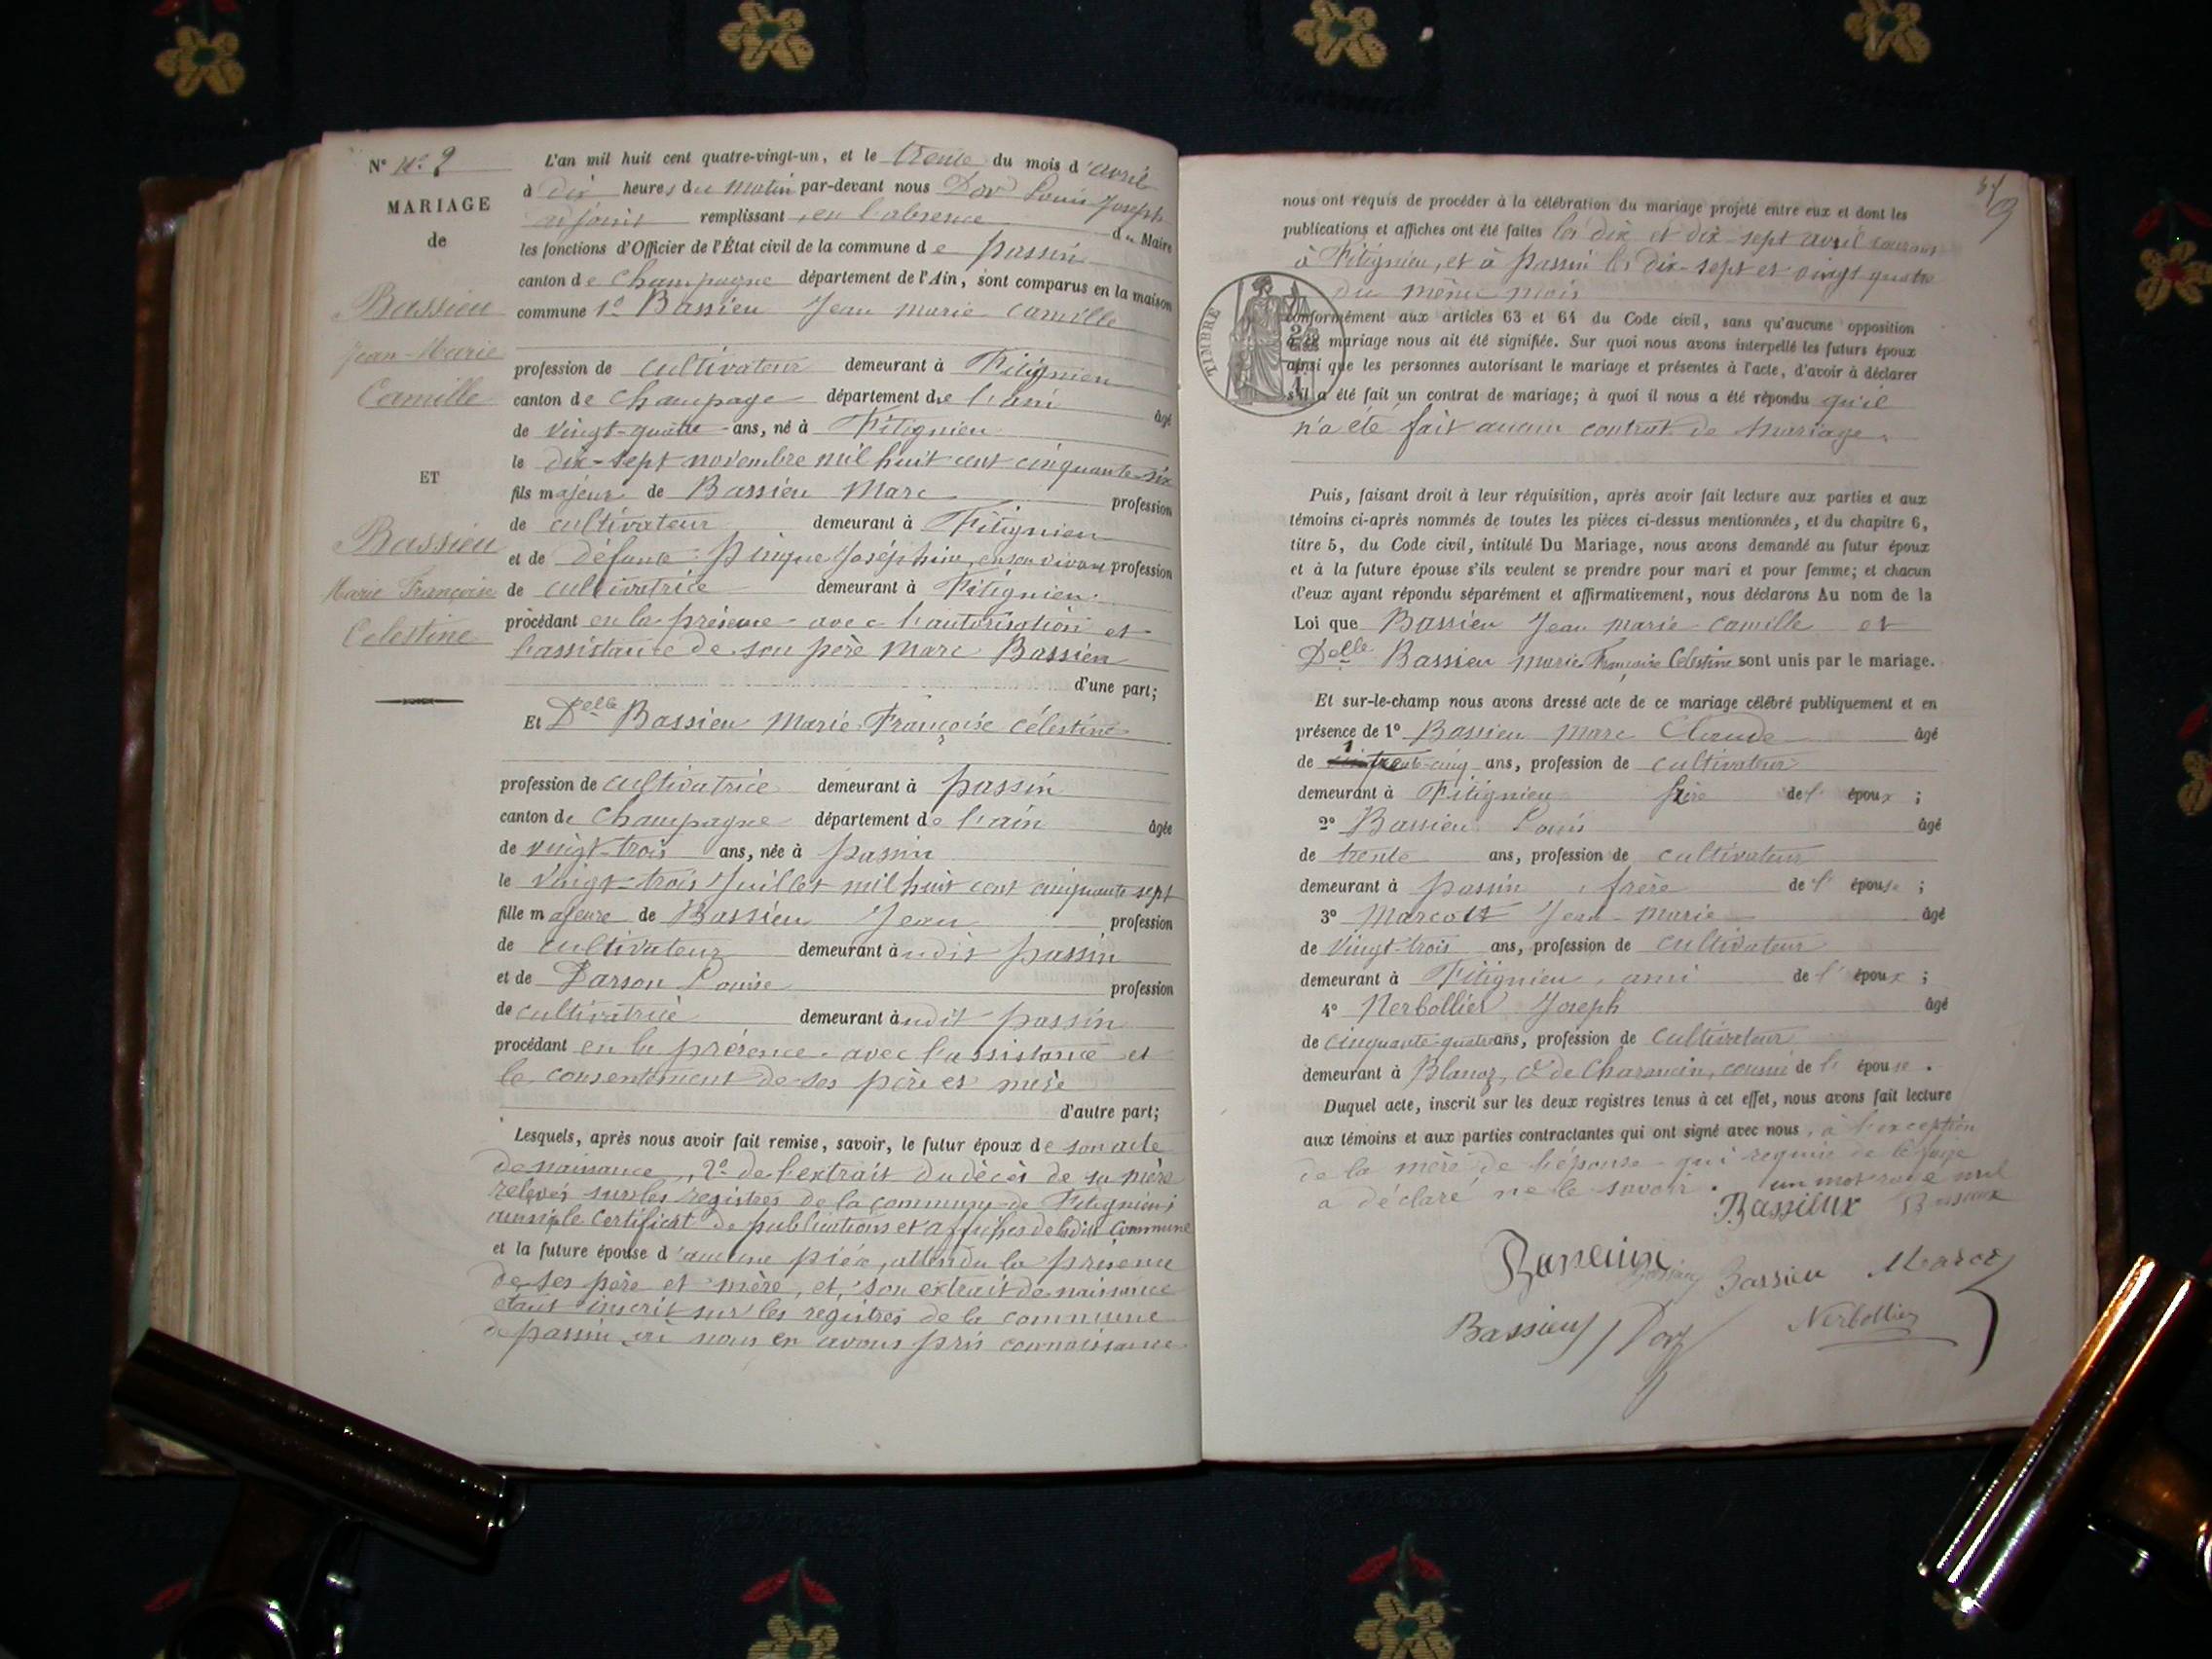 N° n° 2
MARIAGE
de
Bassieu
Jean-Marie
Camille
ET
Bassieu
Marie Françoise
Celestine
L'an mil huit cent quatre-vingt-un, et le trente du mois d'avril
à dix heures du matin par-devant nous Louis Joseph
adjoint remplissant en l'absence du Maire
les fonctions d'Officier de l'État civil de la commune de passin
canton de Champagne département de l'Ain, sont comparus en la maison
commune 1° Bassieu Jean marie Camille
profession de cultivateur demeurant à Fitignieu
canton de Champage département de l'ain âgé
de vingt-quatre ans, né à Fitignieu
le dix-sept novembre mil huit cent cinquante-six
fils majeur de Bassieu Marc profession
de cultivateur demeurant à Fitignieu
et de défunte Joséphine, en son vivant profession
de cultivatrice demeurant à Fitignieu
procédant en la présence avec l'autorisation et
l'assistance de son père Marc Bassieu
d'une part;
Et Delle Bassieu Marie Françoise Célestine
profession de cultivatrice demeurant à passin
canton de Champagne département de l'ain âgée
de vingt-trois ans, née à passin
le vingt-trois Juillet mil huit cent cinquante sept
fille majeure de Bassieu Jean profession
de cultivateur demeurant à udit passin
et de Darson Louise profession
de cultivatrice demeurant à udit passin
procédant en la présence avec l'assistance et
le consentement de ses père et mère
d'autre part;
Lesquels, après nous avoir fait remise, savoir, le futur époux de son acte
de naissance, 2° de l'extrait du décès de sa mère
relevés sur les registres de la commune de Fitignieu
ainsi le certificat de publications et affiches de ladite commune
et la future épouse d'aucune pièce, attendu la présence
de ses père et mère, et son extrait de naissance
étant inscrit sur les registres de la commune
de passin où nous en avons pris connaissance
nous ont requis de procéder à la célébration du mariage projeté entre eux et dont les
publications et affiches ont été faites les dix et dix-sept avril courant
à Fitignieu, et à passin les dix-sept et vingt quatre
du même mois
conformément aux articles 63 et 64 du Code civil, sans qu'aucune opposition
à ce mariage nous ait été signifiée. Sur quoi nous avons interpellé les futurs époux
ainsi que les personnes autorisant le mariage et présentes à l'acte, d'avoir à déclarer
s'il a été fait un contrat de mariage; à quoi il nous a été répondu qu'il
n'a été fait aucun contrat de mariage.
TIMBRE
Puis, faisant droit à leur réquisition, après avoir fait lecture aux parties et aux
témoins ci-après nommés de toutes les pièces ci-dessus mentionnées, et du chapitre 6,
titre 5, du Code civil, intitulé Du Mariage, nous avons demandé au futur époux
et à la future épouse s'ils veulent se prendre pour mari et pour femme; et chacun
d'eux ayant répondu séparément et affirmativement, nous déclarons Au nom de la
Loi que Bassieu Jean marie Camille et
Delle Bassieu marie Françoise Célestine sont unis par le mariage.
Et sur-le-champ nous avons dressé acte de ce mariage célébré publiquement et en
présence de 1° Bassieu Marc Claude âgé
de trente-cinq ans, profession de cultivateur
demeurant à Fitignieu frère de l'époux ;
2° Bassieu Louis âgé
de trente ans, profession de cultivateur
demeurant à passin, frère de l'épouse ;
3° Marcoz Jean-Marie âgé
de vingt-trois ans, profession de cultivateur
demeurant à Fitignieu, ami de l'époux ;
4° Nerbollier Joseph âgé
de cinquante-quatre ans, profession de cultivateur
demeurant à Blanaz, Cne de Charancin, cousin de l'épouse.
Duquel acte, inscrit sur les deux registres tenus à cet effet, nous avons fait lecture
aux témoins et aux parties contractantes qui ont signé avec nous, à l'exception
de la mère de l'épouse qui requise de le faire
a déclaré ne le savoir. un mot rayé nul
Bassieux Bassieux
Bassieu Marcoz
Bassieu Nerbollier